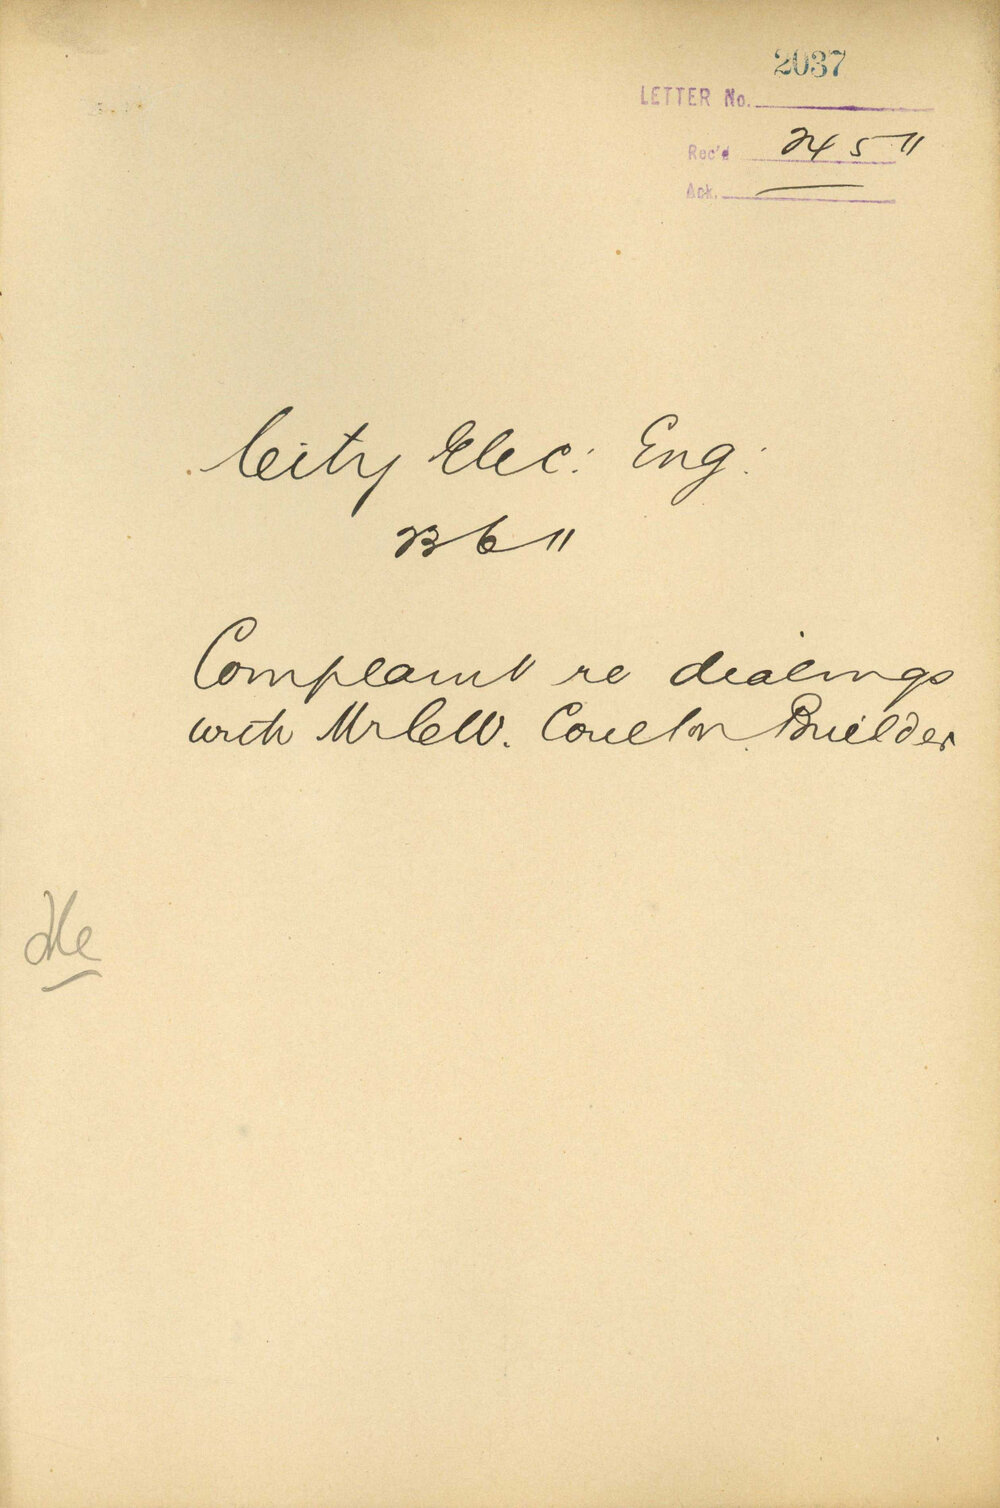 2037
LETTER No.
Rec'd 24 5 11
Ack.
City Elec: Eng:
23 6 11
Complaint re dealings
with Mr C W. Coulton Builder